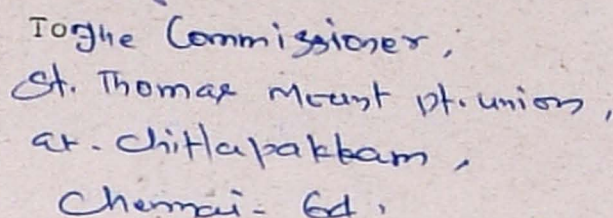 To the Commissioner,
St. Thomas Mount pt. union,
at. Chitlapakkam,
Chennai - 64.